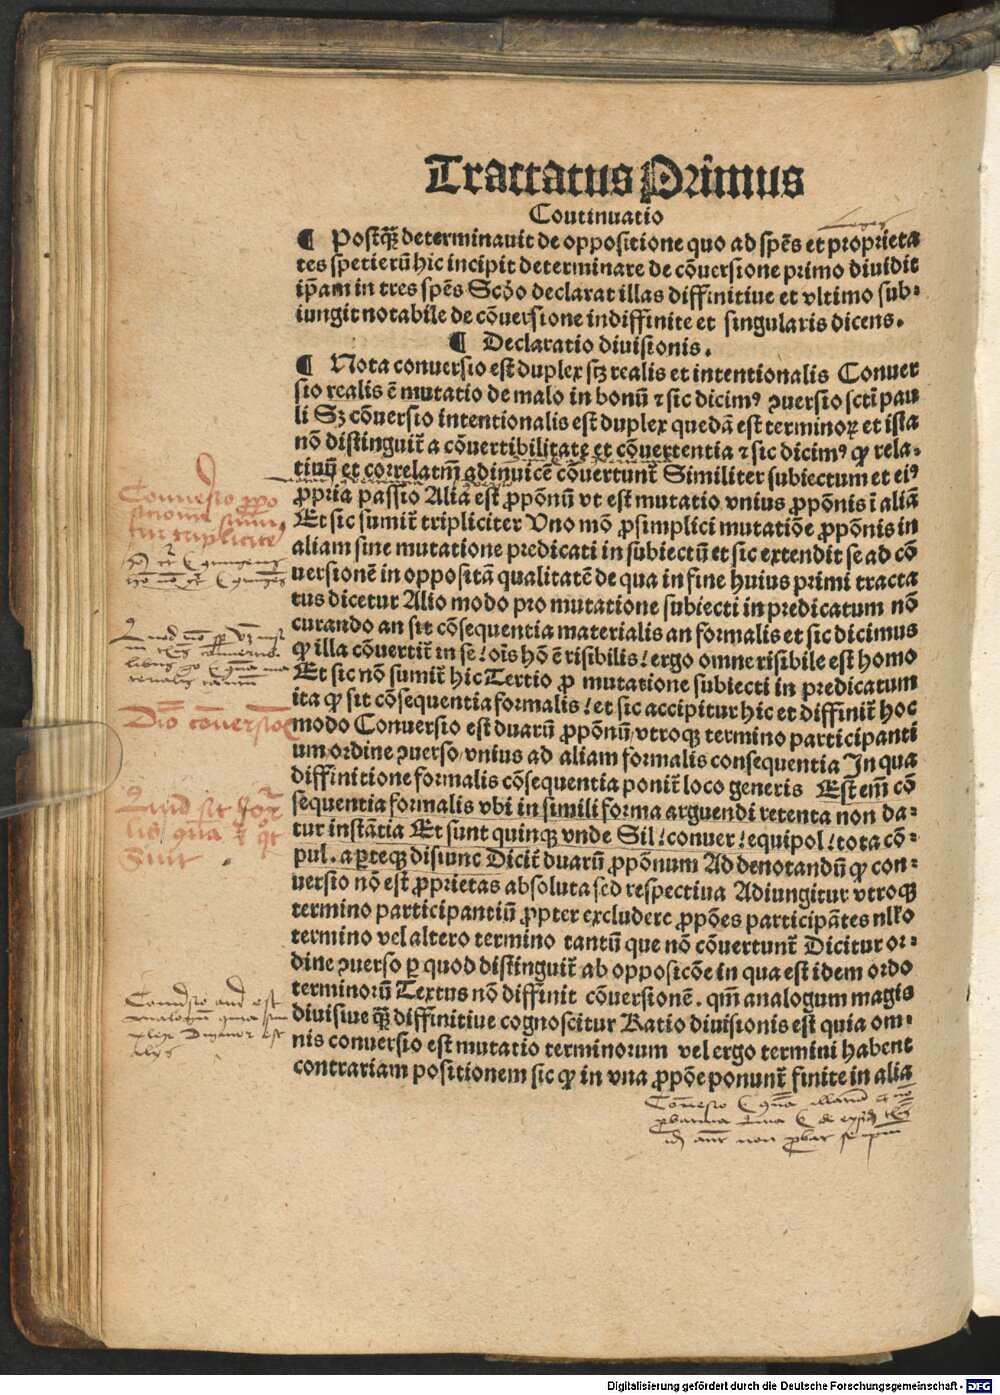 Tractatus Primus
Continuatio
¶ Postq̃ꝫ determinauit de oppositione quo ad spēs et proprieta
tes spetierū hic incipit determinare de cōuersione primo diuidit
ip̄am in tres spēs Scḋo declarat illas diffinitiue et vltimo sub⸗
iungit notabile de cōuersione indiffinite et singularis dicens.
¶ Declaratio diuisionis.
¶ Nota conuersio est duplex scꝫ realis et intentionalis Conuer
sio realis ē mutatio de malo in bonū ⁊ sic dicimꝰ ꝯuersio scti pau
li Sꝫ cōuersio intentionalis est duplex quedā est terminoꝝ et ista
nō distinguit̄ a cōuertibilitate et cōuertentia ⁊ sic dicimꝰ ꝙ rela⸗
tiuū et correlatm̄ adinuicē cōuertunt̄ Similiter subiectum et eiꝰ
ꝓpria passio Alia est ꝓpōnū vt est mutatio vnius ꝓpōnis ī aliā
Et sic sumit̄ tripliciter Uno mō ꝓ simplici mutatiōe ꝓpōnis in
aliam sine mutatione predicati in subiectū et sic extendit se ad cō
uersionē in oppositā qualitatē de qua in fine huius primi tracta
tus dicetur Alio modo pro mutatione subiecti in predicatum nō
curando an sit cōsequentia materialis an formalis et sic dicimus
ꝙ illa cōuertit̄ in se / oīs hō ē risibilis / ergo omne risibile est homo
Et sic nō sumit̄ hic Tertio ꝓ mutatione subiecti in predicatum
ita ꝙ sit cōsequentia formalis / et sic accipitur hic et diffinit̄ hoc
modo Conuersio est duarū ꝓpōnū vtroqꝫ termino participanti
um ordine ꝯuerso vnius ad aliam formalis consequentia In qua
diffinitione formalis cōsequentia ponit̄ loco generis Est em̄ cō
sequentia formalis vbi in simili forma arguendi retenta non da⸗
tur instātia Et sunt quinqꝫ vnde Sil / conuer / equipol / tota cō⸗
pul. a ꝑteqꝫ disiunc Dicit̄ duarū ꝓpōnum Ad denotandū ꝙ con⸗
uersio nō est ꝓprietas absoluta sed respectiua Adiungitur vtroqꝫ
termino participantiū ꝓpter excludere ꝓpōes participātes nllo
termino vel altero termino tantū que nō cōuertunt̄ Dicitur or⸗
dine ꝯuerso ꝑ quod distinguit̄ ab opposicōe in qua est idem ordo
terminorū Textus nō diffinit cōuersionē. qm̄ analogum magis
diuisiue q̃ꝫ diffinitiue cognoscitur Ratio diuisionis est quia om⸗
nis conuersio est mutatio terminorum vel ergo termini habent
contrariam positionem sic ꝙ in vna ꝓpōe ponunt̄ finite in alia
Digitalisierung gefördert durch die Deutsche Forschungsgemeinschaft - DFG